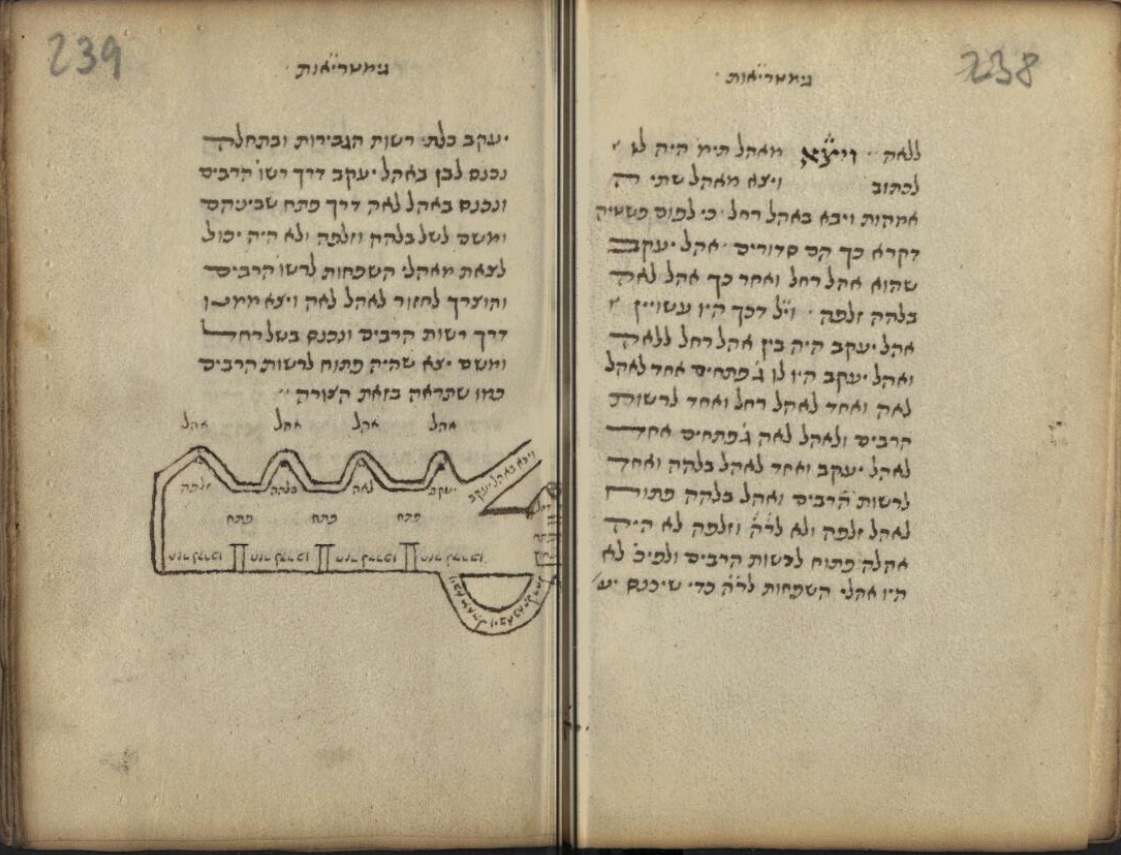 238
גימטריאות
ללאה ויצא מאהל תימ׳ היה לו
לכתוב ויצא מאהל שתי
אמהות ויבא באהל רחל כי לפום פשטיה
דקרא כך הם סדורים אהל יעקב
שהוא אהל רחל ואחר כך אהל לאה
בלהה זלפה וי״ל דכך היו עשויין
אהל יעקב היה בין אהל רחל ללאה
ואהל יעקב היו לו ג׳ פתחים אחד לאהל
לאה ואחד לאהל רחל ואחד לרשות
הרבים ולאהל לאה ג׳ פתחים אחד
לאהל יעקב ואחד לאהל בלהה ואחד
לרשות הרבים ואהל בלהה פתוח
לאהל זלפה ולא לר״ה וזלפה לא היה
אהלה פתוח לרשות הרבים ולפיכ׳ לא
היו אהלי השפחות לר״ה כדי שיכנס יע׳
239
גימטריאות
יעקב בלתי רשות הגבירות ובתחלה
נכנס לבן באהל יעקב דרך רשו׳ הרבים
ונכנס באהל לאה דרך פתח שבינתם
ומשם לשל בלהה וזלפה ולא היה יכול
לצאת מאהלי השפחות לרשו׳ הרבים
והוצרך לחזור לאהל לאה ויצא ממנו
דרך רשות הרבים ונכנס בשל רחל
ומשם יצא שהיה פתוח לרשות הרבים
כמו שתראה בזאת הצורה
אהל אהל אהל אהל
יעקב לאה בלהה זלפה
ויבא באהל יעקב
פתח פתח פתח